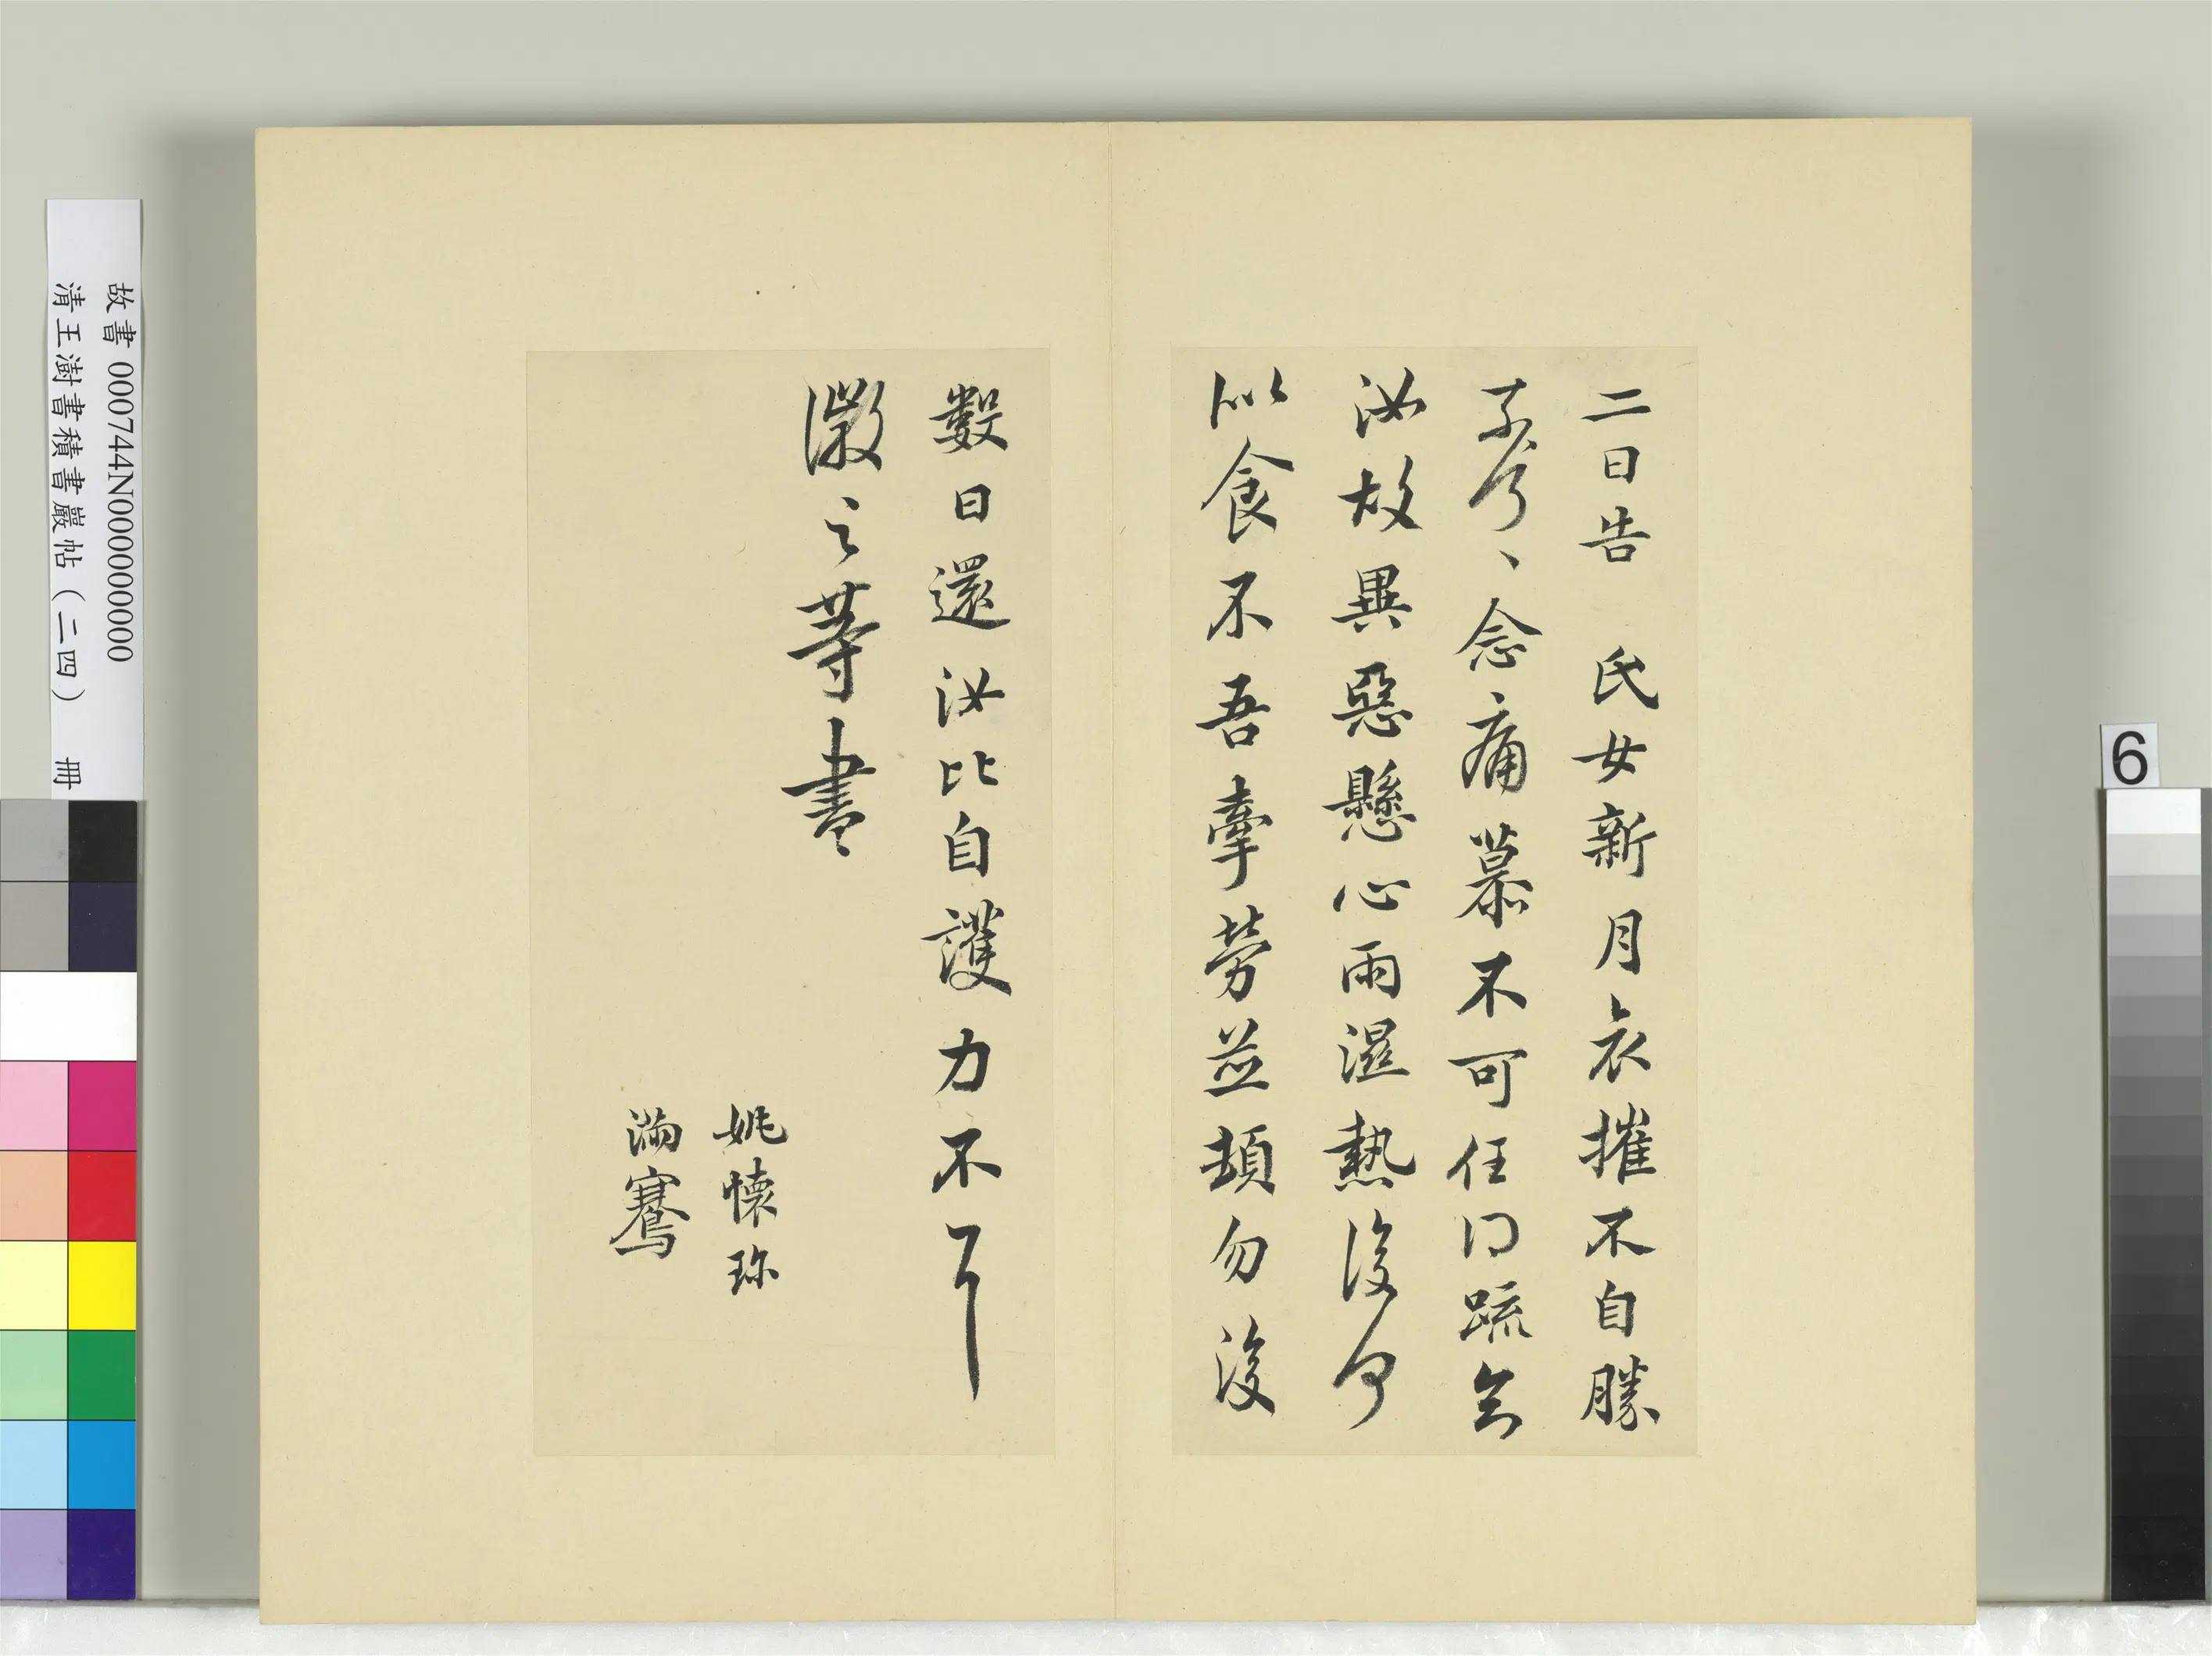 二日告 氏女新月哀摧不自勝
奈何〻念痛慕不可任得疏知
汝故異惡懸心雨濕熱復何
似食不吾牽勞並頓勿復
數日還汝比自護力不
徽之等書
姚懷珍
滿騫
故書 000744N000000000
清王澍書積書巖帖(二四) 冊
6